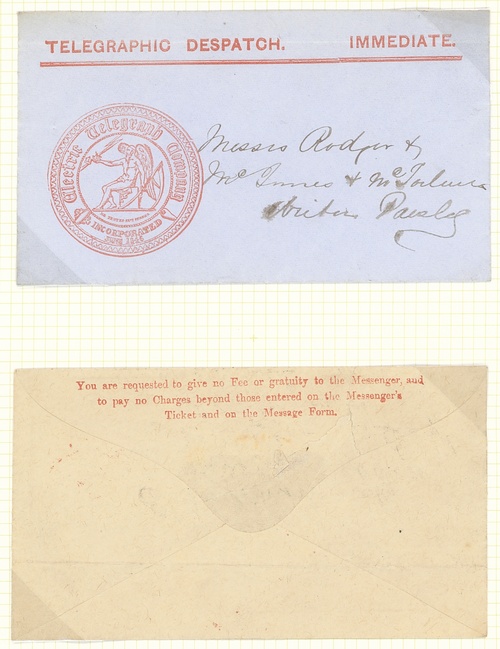 TELEGRAPHIC DESPATCH. IMMEDIATE.
Electric Telegraph Company
INCORPORATED
JUNE 1846
Messrs Rodger &
McInnes &
Writers Paisley
You are requested to give no Fee or gratuity to the Messenger, and
to pay no Charges beyond those entered on the Messenger's
Ticket and on the Message Form.